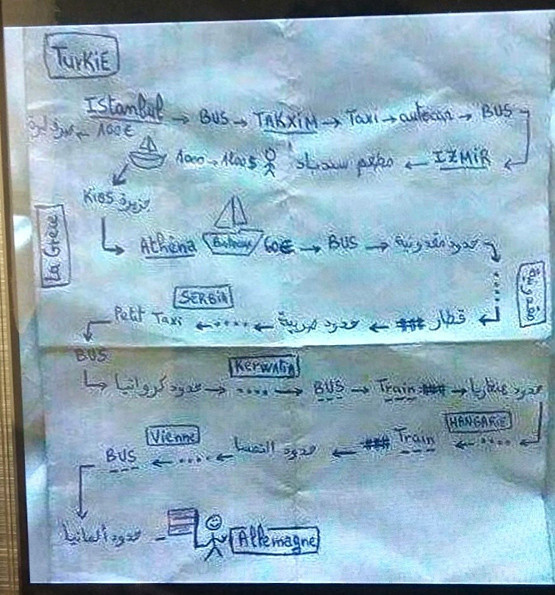 TurkiE
IStanbul → BUS → TAKXIM → Taxi → autocar → BUS
100€
IZMIR ← مطعم سندباد 1000 → 1200$
جزيرة KiOS
La Grèce
Athèna Bateau 60€ → BUS → حدود مقدونية
مقدونية
SERBIA
قطار ← حدود صربية ← .... ← Petit Taxi
BUS
Kerwatia
حدود كرواتيا → .... → BUS → Train → حدود هنغاريا
HANGARIE
Vienne
.... ← Train ← حدود النمسا ← .... ← BUS
حدود ألمانيا
Allemagne